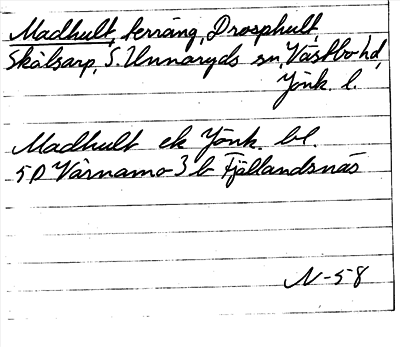 Madhult, terräng, Drosphult,
Skålsarp, S. Unnaryds sn, Västbo hd,
Jönk. l.
Madhult ek Jönk. bl.
5D Värnamo 3b Fjällandsnäs
N-58